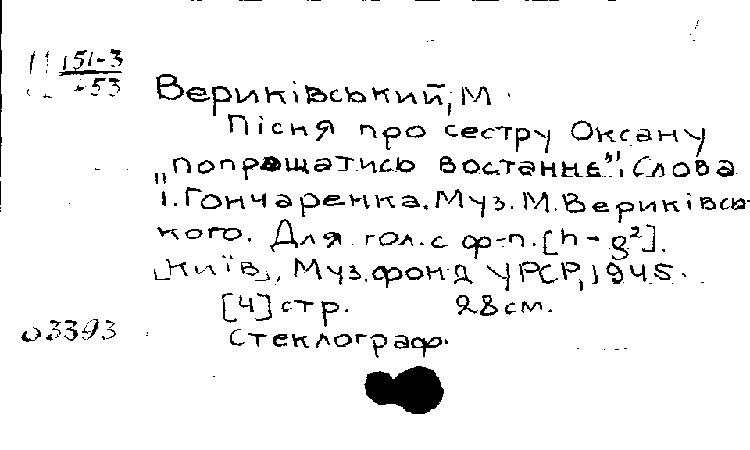 151-3
53
Вериківський, М.
Пісня про сестру Оксану
„попрощатись востаннє". Слова
І. Гончаренка. Муз. М. Вериківсь-
кого. Для гол. с ф-п. [h - g²].
[Київ], Муз. фонд УРСР, 1945.
[4] стр. 28 см.
Стеклограф.
03393